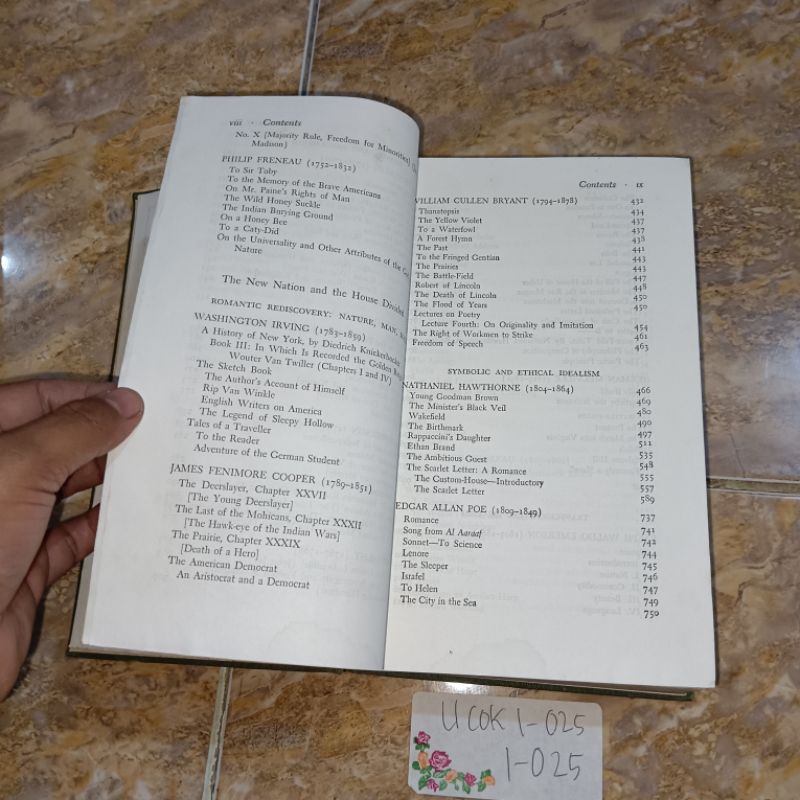 viii · Contents
No. X [Majority Rule, Freedom for Minorities]
Madison]
PHILIP FRENEAU (1752–1832)
To Sir Toby
To the Memory of the Brave Americans
On Mr. Paine's Rights of Man
The Wild Honey Suckle
The Indian Burying Ground
On a Honey Bee
To a Caty-Did
On the Universality and Other Attributes of the
Nature
The New Nation and the House Divided
ROMANTIC REDISCOVERY: NATURE, MAN,
WASHINGTON IRVING (1783–1859)
A History of New York, by Diedrich Knickerbocker
Book III: In Which Is Recorded the Golden
Wouter Van Twiller (Chapters I and IV)
The Sketch Book
The Author's Account of Himself
Rip Van Winkle
English Writers on America
The Legend of Sleepy Hollow
Tales of a Traveller
To the Reader
Adventure of the German Student
JAMES FENIMORE COOPER (1789–1851)
The Deerslayer, Chapter XXVII
[The Young Deerslayer]
The Last of the Mohicans, Chapter XXXII
[The Hawk-eye of the Indian Wars]
The Prairie, Chapter XXXIX
[Death of a Hero]
The American Democrat
An Aristocrat and a Democrat
Contents · ix
WILLIAM CULLEN BRYANT (1794–1878) 432
Thanatopsis 434
The Yellow Violet 437
To a Waterfowl 437
A Forest Hymn 438
The Past 441
To the Fringed Gentian 443
The Prairies 443
The Battle-Field 447
Robert of Lincoln 448
The Death of Lincoln 450
The Flood of Years 450
Lectures on Poetry
Lecture Fourth: On Originality and Imitation 454
The Right of Workmen to Strike 461
Freedom of Speech 463
SYMBOLIC AND ETHICAL IDEALISM
NATHANIEL HAWTHORNE (1804–1864) 466
Young Goodman Brown 469
The Minister's Black Veil 480
Wakefield 490
The Birthmark 497
Rappaccini's Daughter 511
Ethan Brand 535
The Ambitious Guest 548
The Scarlet Letter: A Romance 555
The Custom-House—Introductory 557
The Scarlet Letter 589
EDGAR ALLAN POE (1809–1849) 737
Romance 741
Song from Al Aaraaf 742
Sonnet—To Science 744
Lenore 745
The Sleeper 746
Israfel 747
To Helen 749
The City in the Sea 750
UCOK 1-025
1-025